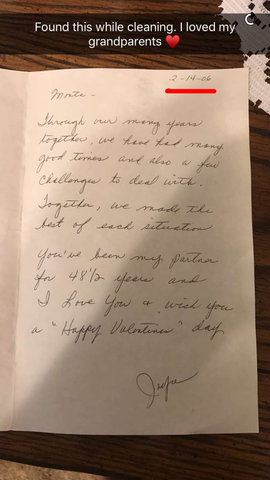 Found this while cleaning. I loved my
grandparents ❤️
2-14-06
Through our many years
together, we have had many
good times and also a few
challenges to deal with.
Together, we made the
best of each situation
You've been my partner
for 48 1/2 years and
I Love You & wish you
a "Happy Valentines" day